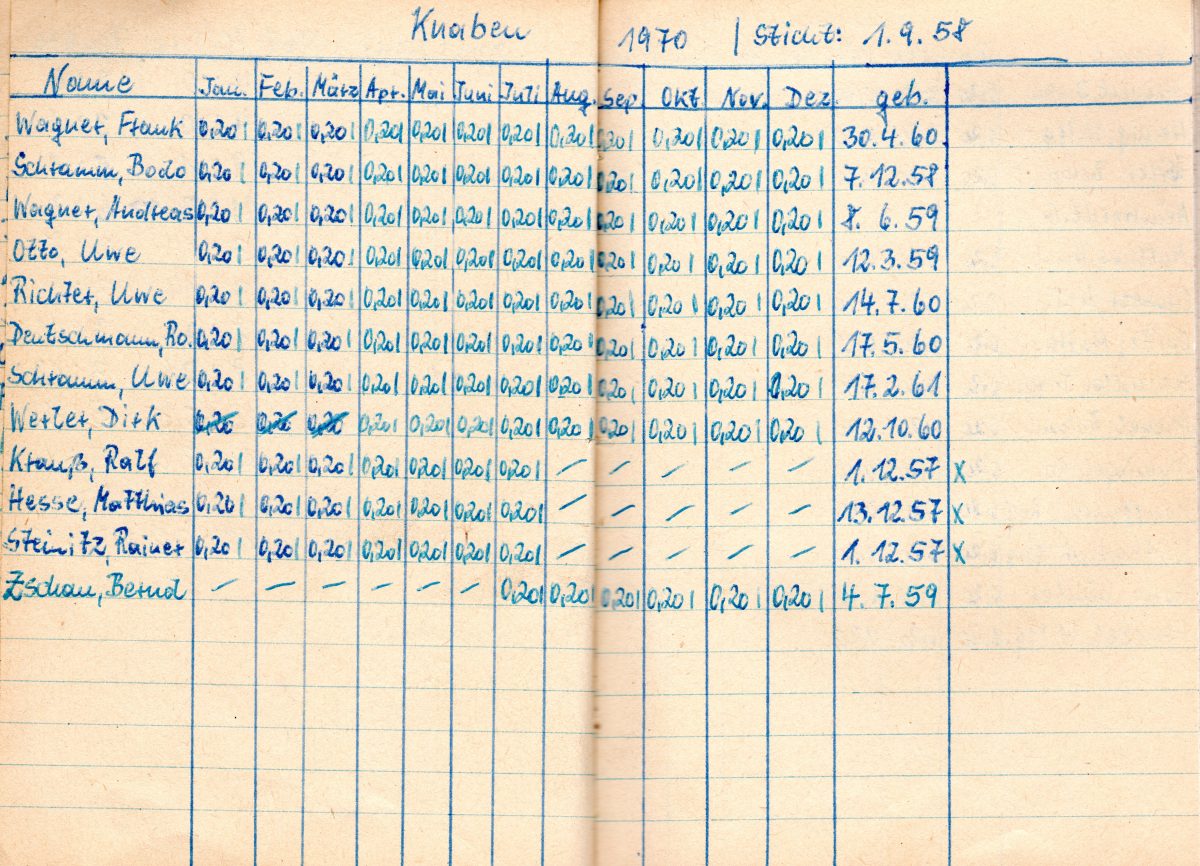 Knaben 1970 | Sticht: 1.9.58
Name Jan. Feb. März Apr. Mai Juni Juli Aug. Sep. Okt. Nov. Dez. geb.
Wagner, Frank 0,20 | 0,20 | 0,20 | 0,20 | 0,20 | 0,20 | 0,20 | 0,20 | 0,20 | 0,20 | 0,20 | 0,20 | 30.4.60
Schramm, Bodo 0,20 | 0,20 | 0,20 | 0,20 | 0,20 | 0,20 | 0,20 | 0,20 | 0,20 | 0,20 | 0,20 | 0,20 | 7.12.58
Wagner, Andreas 0,20 | 0,20 | 0,20 | 0,20 | 0,20 | 0,20 | 0,20 | 0,20 | 0,20 | 0,20 | 0,20 | 0,20 | 8.6.59
Otto, Uwe 0,20 | 0,20 | 0,20 | 0,20 | 0,20 | 0,20 | 0,20 | 0,20 | 0,20 | 0,20 | 0,20 | 0,20 | 12.3.59
Richter, Uwe 0,20 | 0,20 | 0,20 | 0,20 | 0,20 | 0,20 | 0,20 | 0,20 | 0,20 | 0,20 | 0,20 | 0,20 | 14.7.60
Deutschmann, Ro. 0,20 | 0,20 | 0,20 | 0,20 | 0,20 | 0,20 | 0,20 | 0,20 | 0,20 | 0,20 | 0,20 | 0,20 | 17.5.60
Schramm, Uwe 0,20 | 0,20 | 0,20 | 0,20 | 0,20 | 0,20 | 0,20 | 0,20 | 0,20 | 0,20 | 0,20 | 0,20 | 17.2.61
Werler, Dirk 0,20 0,20 0,20 0,20 | 0,20 | 0,20 | 0,20 | 0,20 | 0,20 | 0,20 | 0,20 | 0,20 | 12.10.60
Krauß, Ralf 0,20 | 0,20 | 0,20 | 0,20 | 0,20 | 0,20 | 0,20 | – – – – – 1.12.57 x
Hesse, Matthias 0,20 | 0,20 | 0,20 | 0,20 | 0,20 | 0,20 | 0,20 | – – – – – 13.12.57 x
Steinitz, Rainer 0,20 | 0,20 | 0,20 | 0,20 | 0,20 | 0,20 | 0,20 | – – – – – 1.12.57 x
Zschau, Bernd – – – – – – 0,20 | 0,20 | 0,20 | 0,20 | 0,20 | 0,20 | 4.7.59